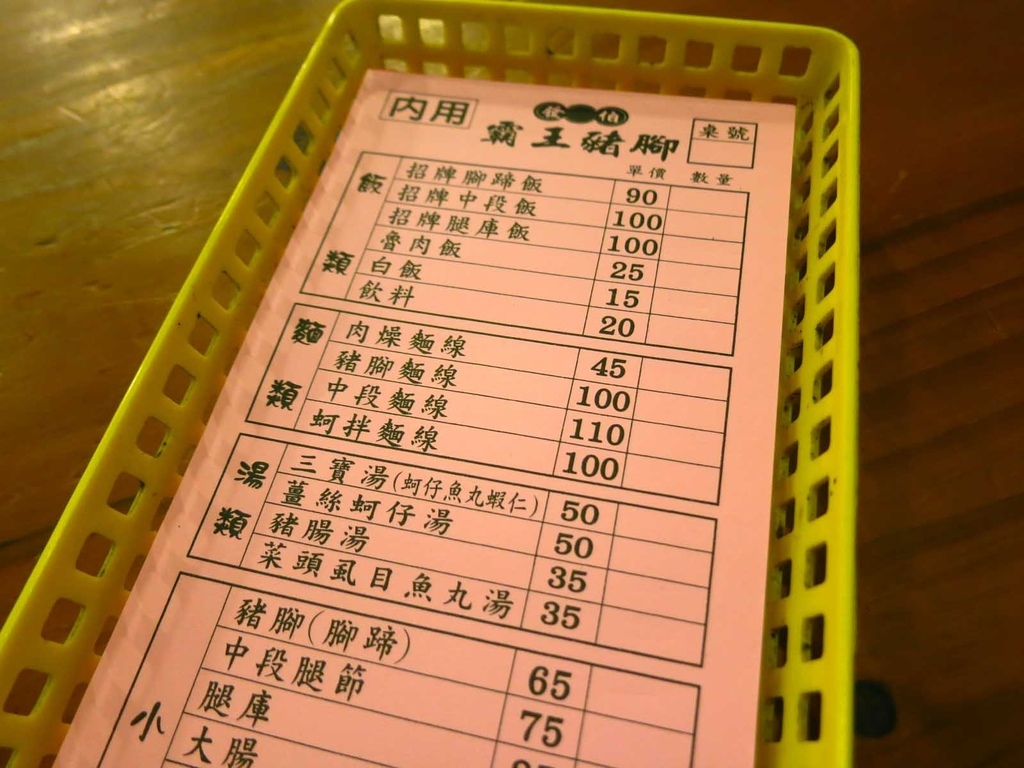 內用
霸王豬腳
桌號
單價 數量
飯類
招牌腳蹄飯 90
招牌中段飯 100
招牌腿庫飯 100
魯肉飯 25
白飯 15
飲料 20
麵類
肉燥麵線 45
豬腳麵線 100
中段麵線 110
蚵拌麵線 100
湯類
三寶湯(蚵仔魚丸蝦仁) 50
薑絲蚵仔湯 50
豬腸湯 35
菜頭虱目魚丸湯 35
小
豬腳(腳蹄) 65
中段腿節 75
腿庫
大腸